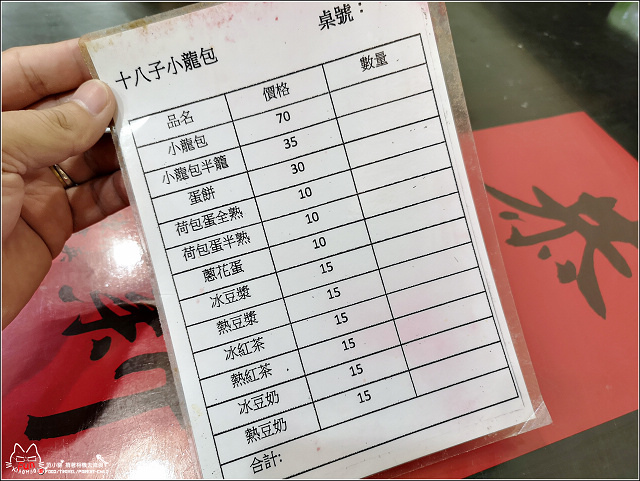 桌號：
十八子小龍包
品名 價格 數量
小龍包 70
小龍包半籠 35
蛋餅 30
荷包蛋全熟 10
荷包蛋半熟 10
蔥花蛋 10
冰豆漿 15
熱豆漿 15
冰紅茶 15
熱紅茶 15
冰豆奶 15
熱豆奶 15
合計: